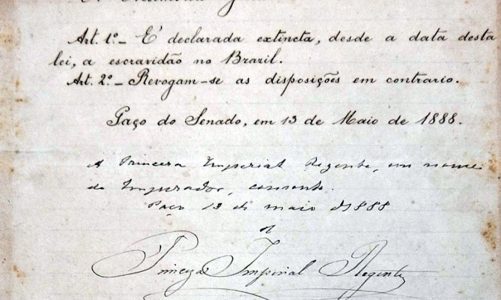 Art. 1º – É declarada extincta, desde a data desta
lei, a escravidão no Brazil.
Art. 2º – Revogam-se as disposições em contrario.
Paço do Senado, em 13 de Maio de 1888.
A Princeza Imperial Regente, em nome
do Imperador, consente.
Paço 13 de maio de 1888
Princeza Imperial Regente